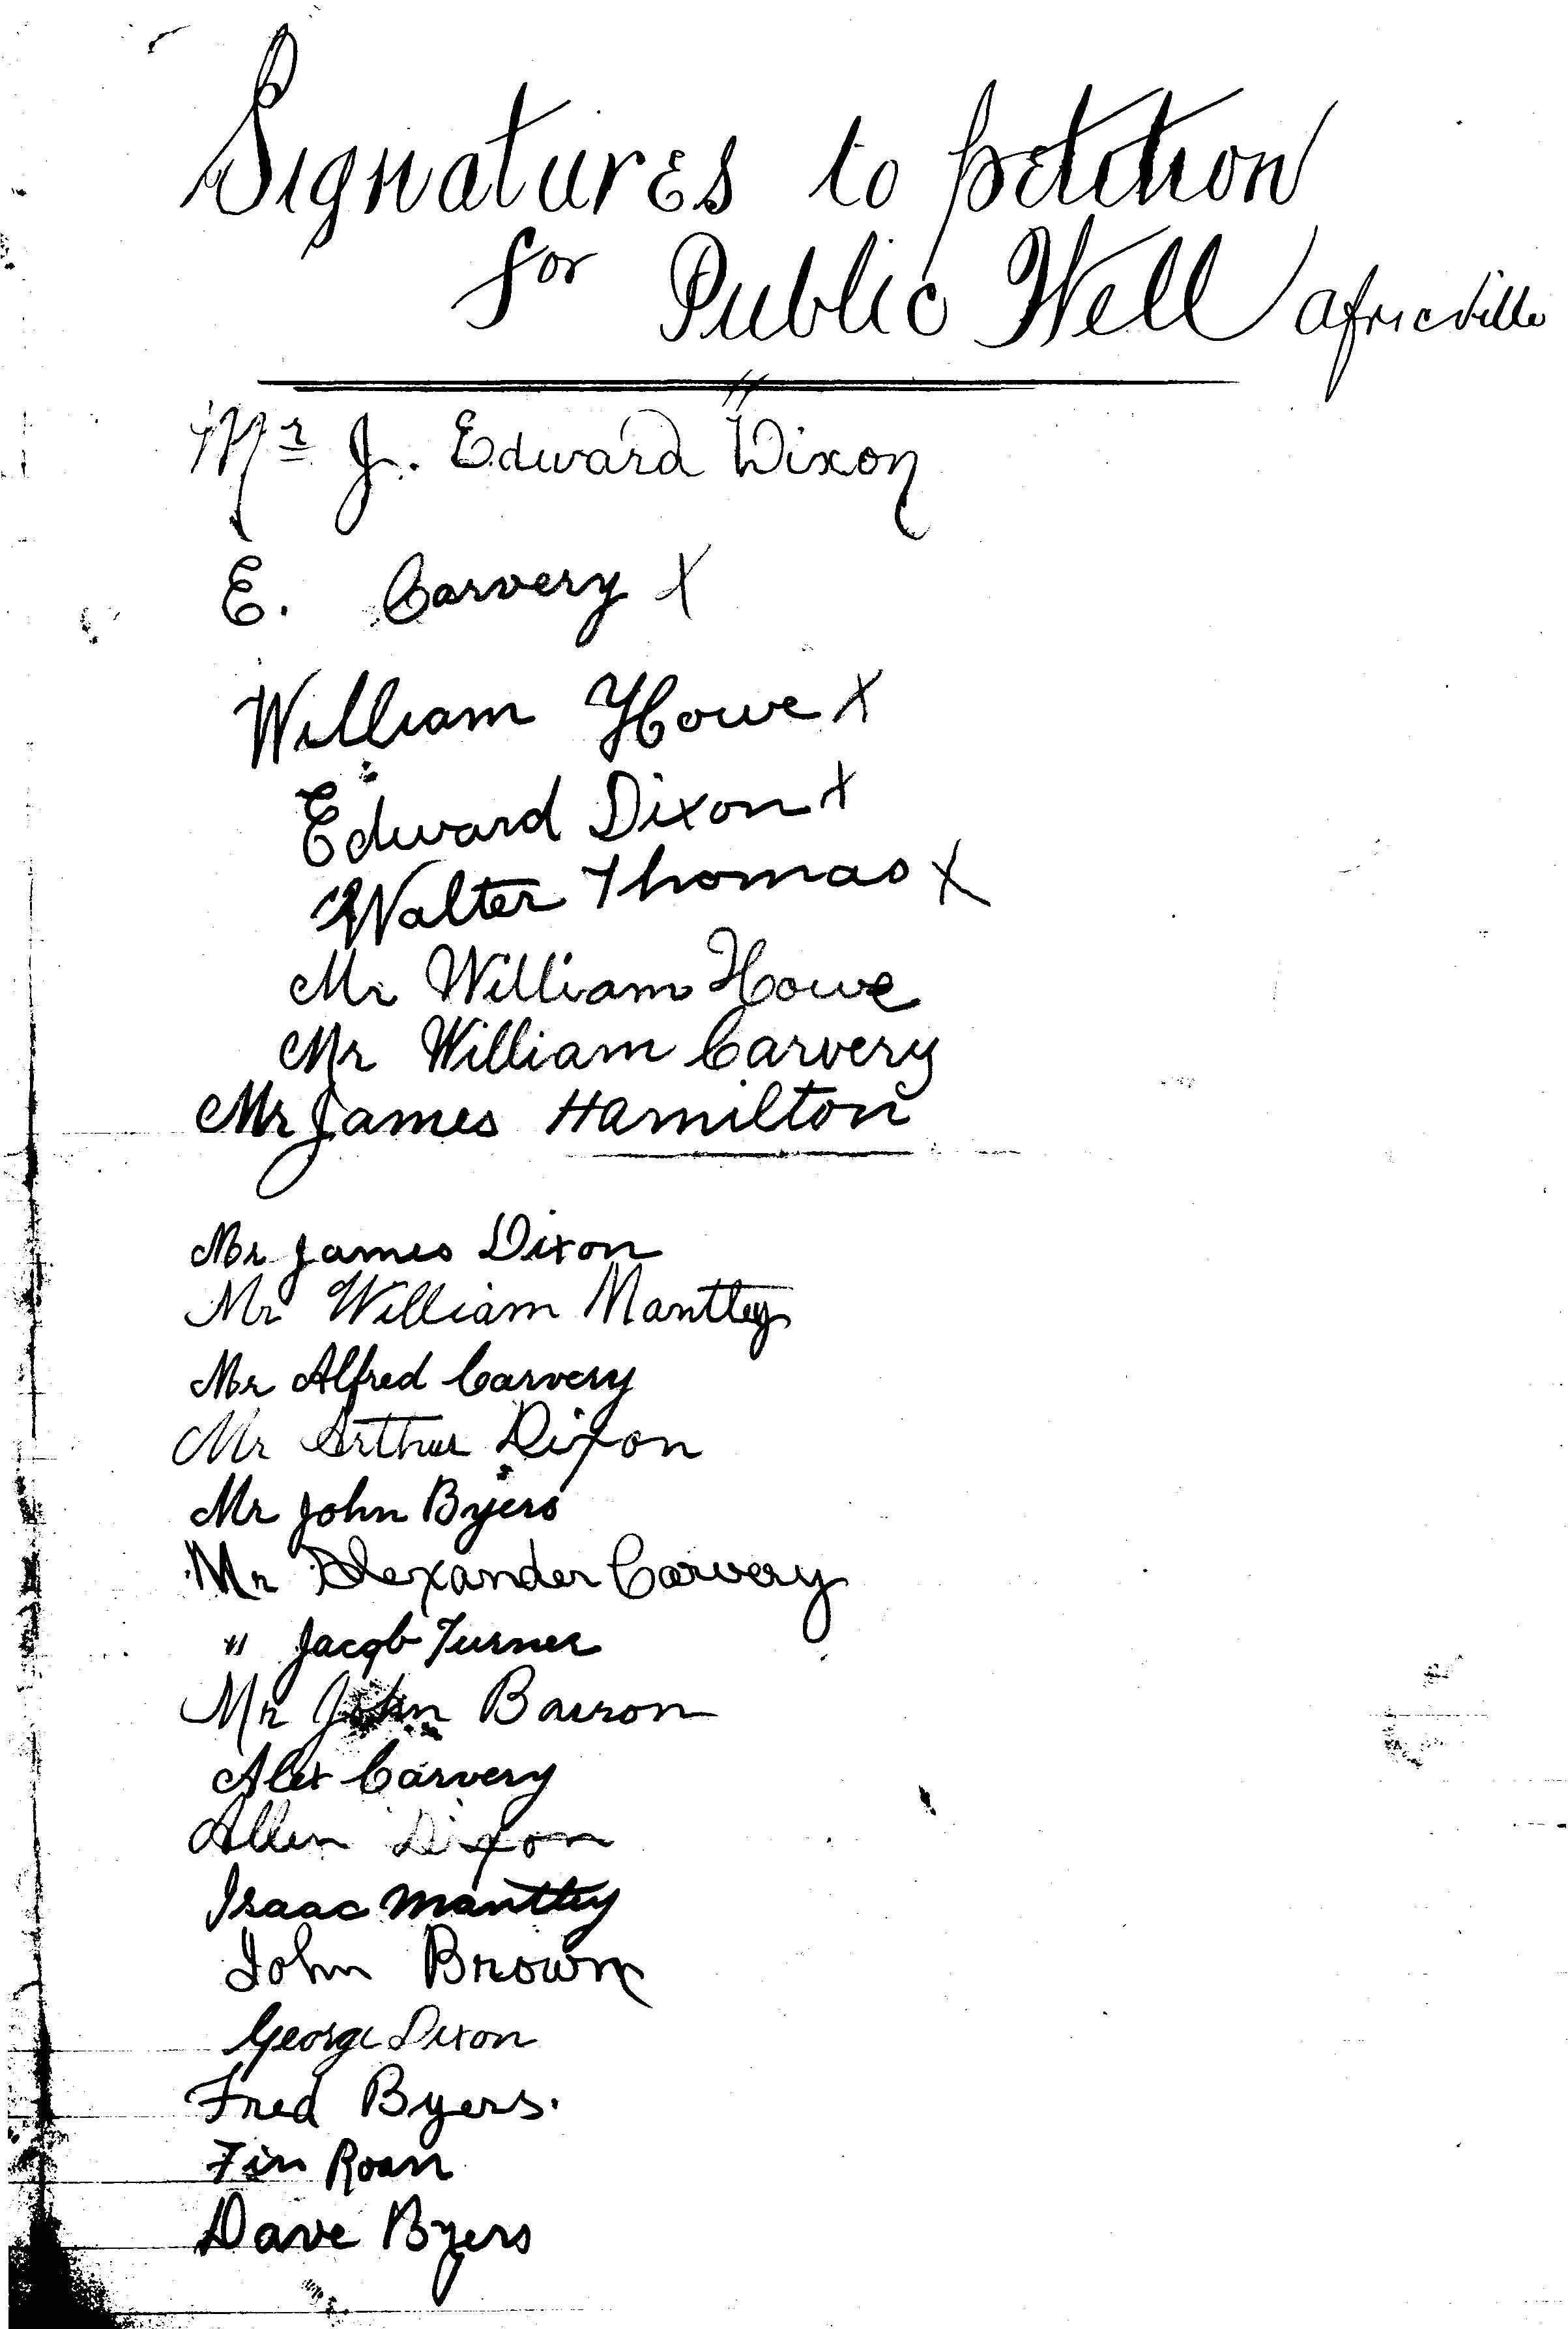 Signatures to petition
for Public Well Africville
Mr J. Edward Dixon
E. Carvery X
William Howe X
Edward Dixon X
Walter Thomas X
Mr William Howe
Mr William Carvery
Mr James Hamilton
Mr James Dixon
Mr William Mantley
Mr Alfred Carvery
Mr Arthur Dixon
Mr John Byers
Mr Alexander Carvery
" Jacob Turner
Mr John Barron
Alex Carvery
Allen Dixon
Isaac Mantley
John Brown
George Dixon
Fred Byers.
Fin Roan
Dave Byers